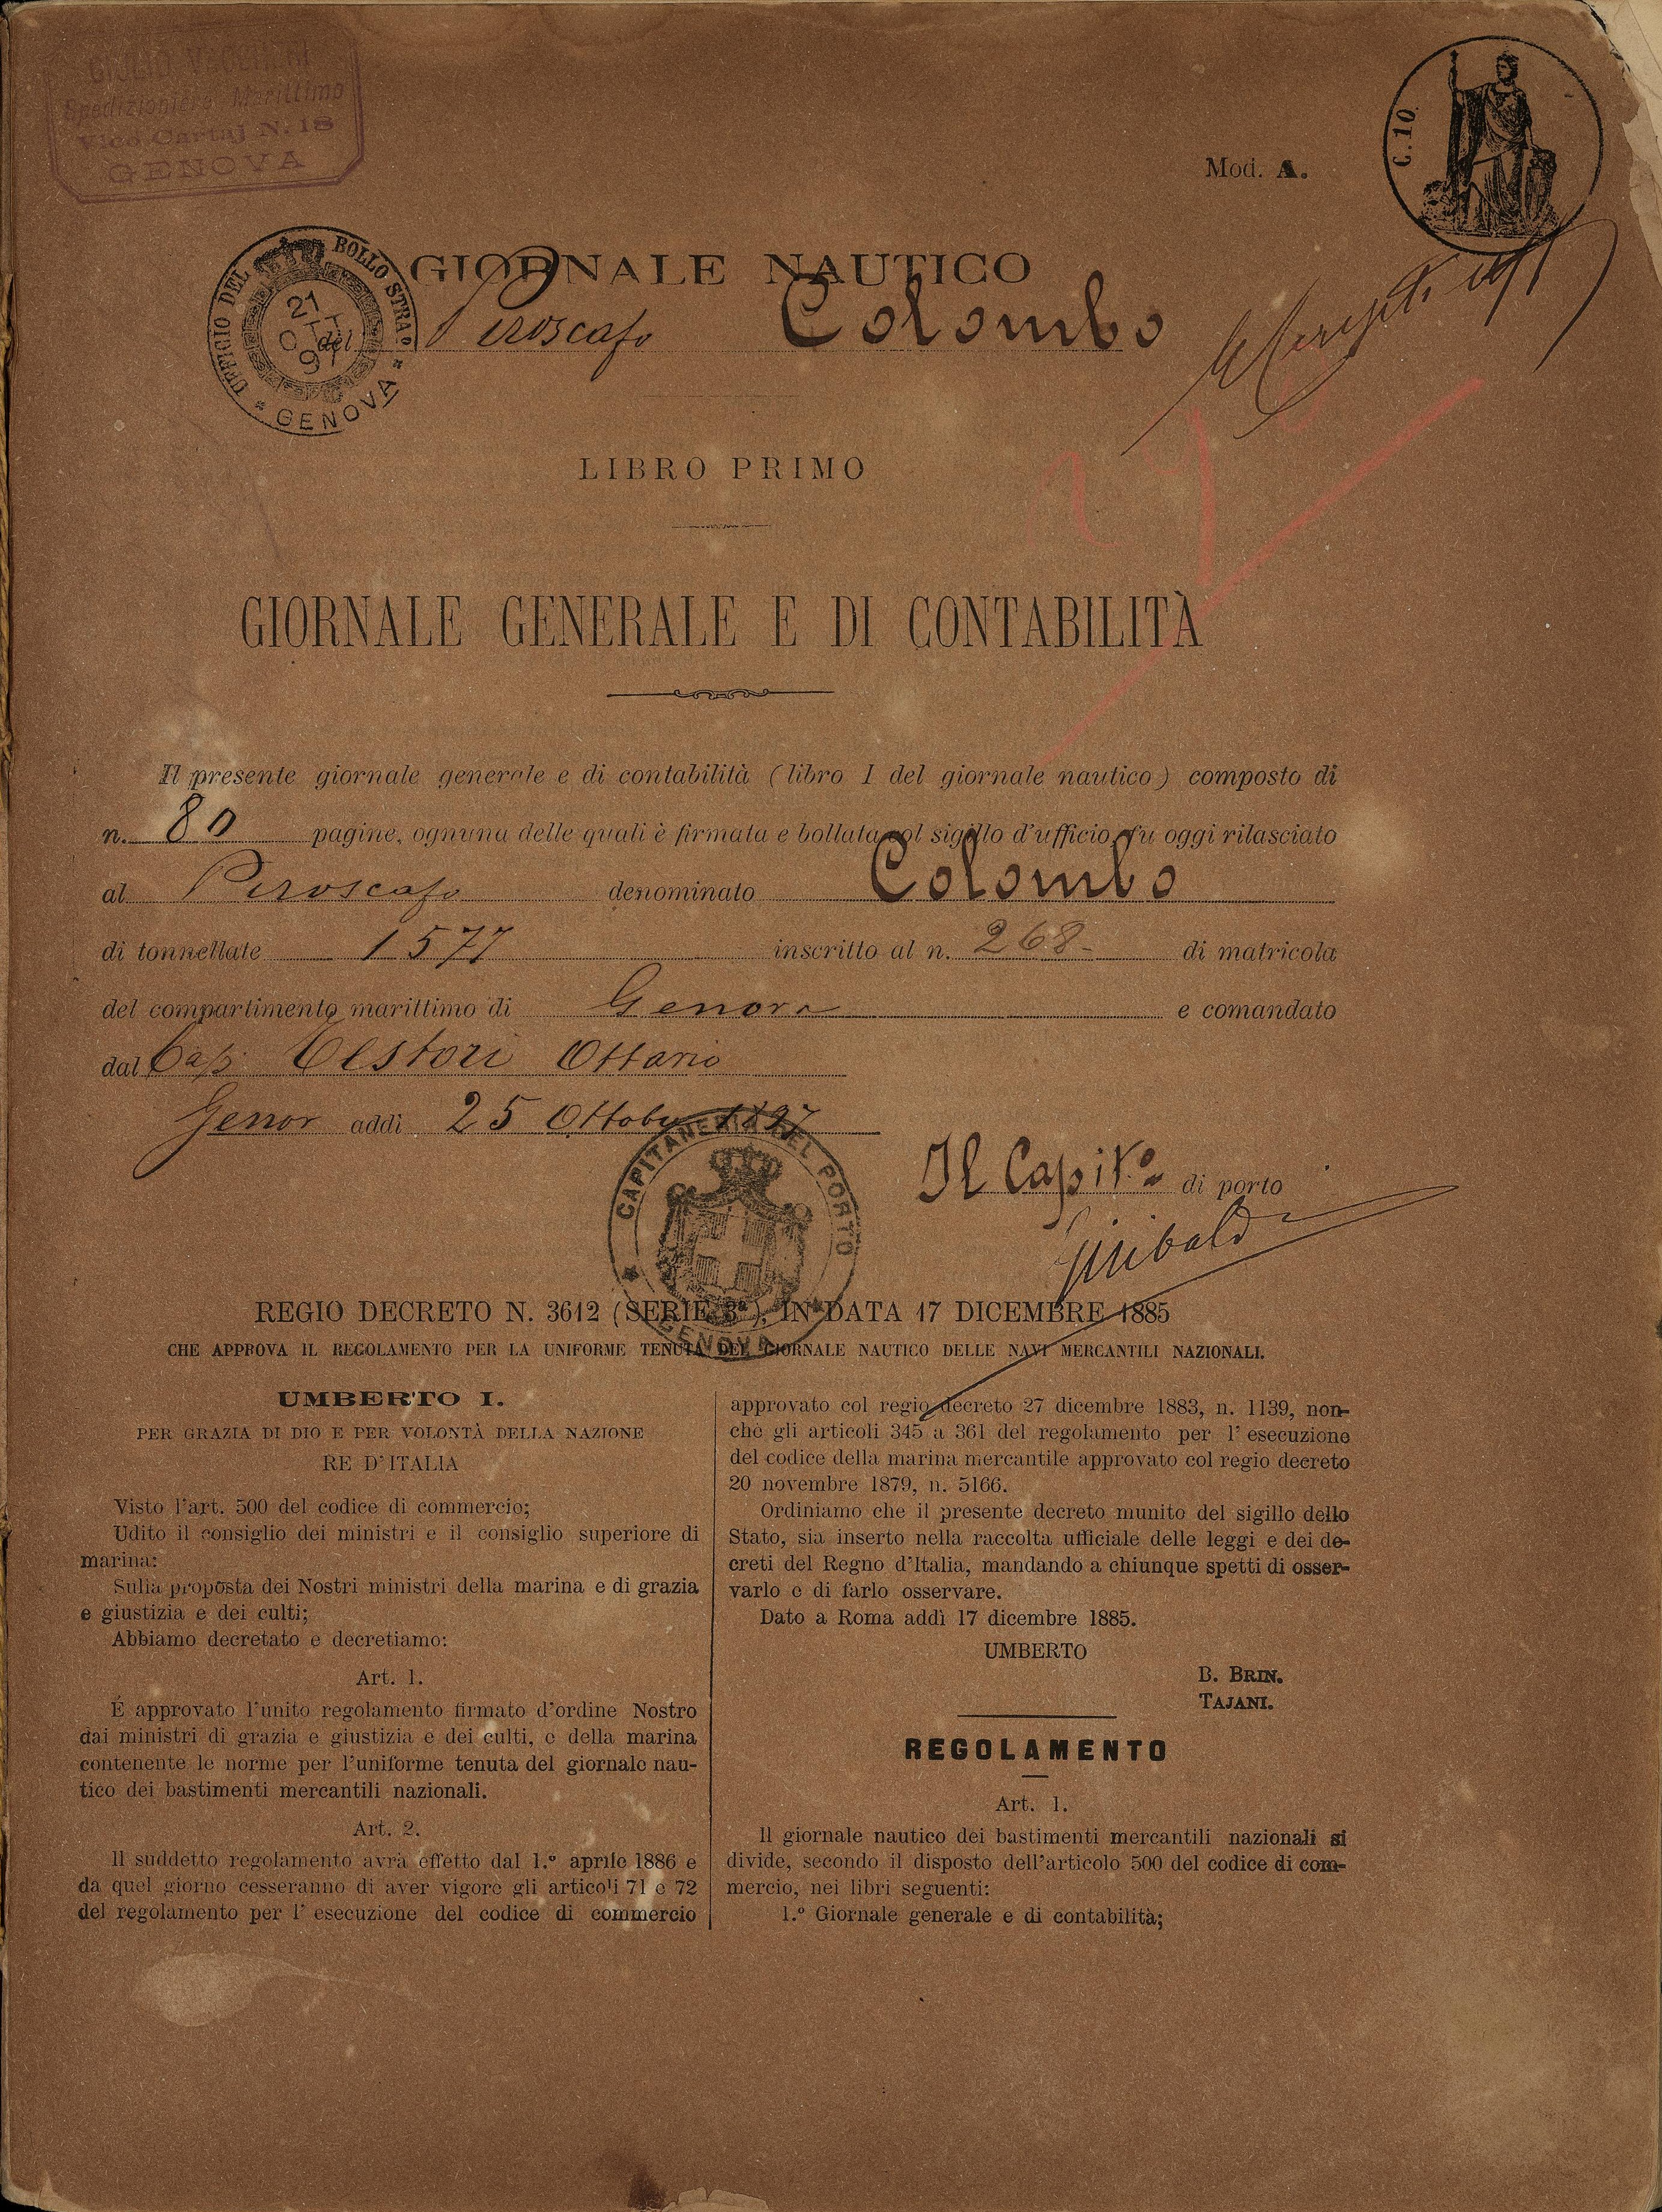 Spedizioniere Marittimo
Vico Cartai N. 18
GENOVA
C. 10.
Mod. A.
UFFICIO DEL BOLLO STRAO
21
OTT
97
GENOVA
GIORNALE NAUTICO
del Piroscafo Colombo
LIBRO PRIMO
GIORNALE GENERALE E DI CONTABILITÀ
Il presente giornale generale e di contabilità (libro I del giornale nautico) composto di
n. 80 pagine, ognuna delle quali è firmata e bollata col sigillo d'ufficio, fu oggi rilasciato
al Piroscafo denominato Colombo
di tonnellate 1577 inscritto al n. 268 di matricola
del compartimento marittimo di Genova e comandato
dal Cap. Testori Ottavio
Genov addì 25 Ottobre 1897
CAPITANERIA DEL PORTO
GENOVA
Il Capit.o di porto
REGIO DECRETO N. 3612 (SERIE 3ª), IN DATA 17 DICEMBRE 1885
CHE APPROVA IL REGOLAMENTO PER LA UNIFORME TENUTA DEL GIORNALE NAUTICO DELLE NAVI MERCANTILI NAZIONALI.
UMBERTO I.
PER GRAZIA DI DIO E PER VOLONTÀ DELLA NAZIONE
RE D'ITALIA
Visto l'art. 500 del codice di commercio;
Udito il consiglio dei ministri e il consiglio superiore di
marina:
Sulla proposta dei Nostri ministri della marina e di grazia
e giustizia e dei culti;
Abbiamo decretato e decretiamo:
Art. 1.
É approvato l'unito regolamento firmato d'ordine Nostro
dai ministri di grazia e giustizia e dei culti, e della marina
contenente le norme per l'uniforme tenuta del giornale nau-
tico dei bastimenti mercantili nazionali.
Art. 2.
Il suddetto regolamento avrà effetto dal 1.º aprile 1886 e
da quel giorno cesseranno di aver vigore gli articoli 71 e 72
del regolamento per l' esecuzione del codice di commercio
approvato col regio decreto 27 dicembre 1883, n. 1139, non-
chè gli articoli 345 a 361 del regolamento per l' esecuzione
del codice della marina mercantile approvato col regio decreto
20 novembre 1879, n. 5166.
Ordiniamo che il presente decreto munito del sigillo dello
Stato, sia inserto nella raccolta ufficiale delle leggi e dei de-
creti del Regno d'Italia, mandando a chiunque spetti di osser-
varlo e di farlo osservare.
Dato a Roma addì 17 dicembre 1885.
UMBERTO
B. BRIN.
TAJANI.
REGOLAMENTO
Art. 1.
Il giornale nautico dei bastimenti mercantili nazionali si
divide, secondo il disposto dell'articolo 500 del codice di com-
mercio, nei libri seguenti:
1.º Giornale generale e di contabilità;